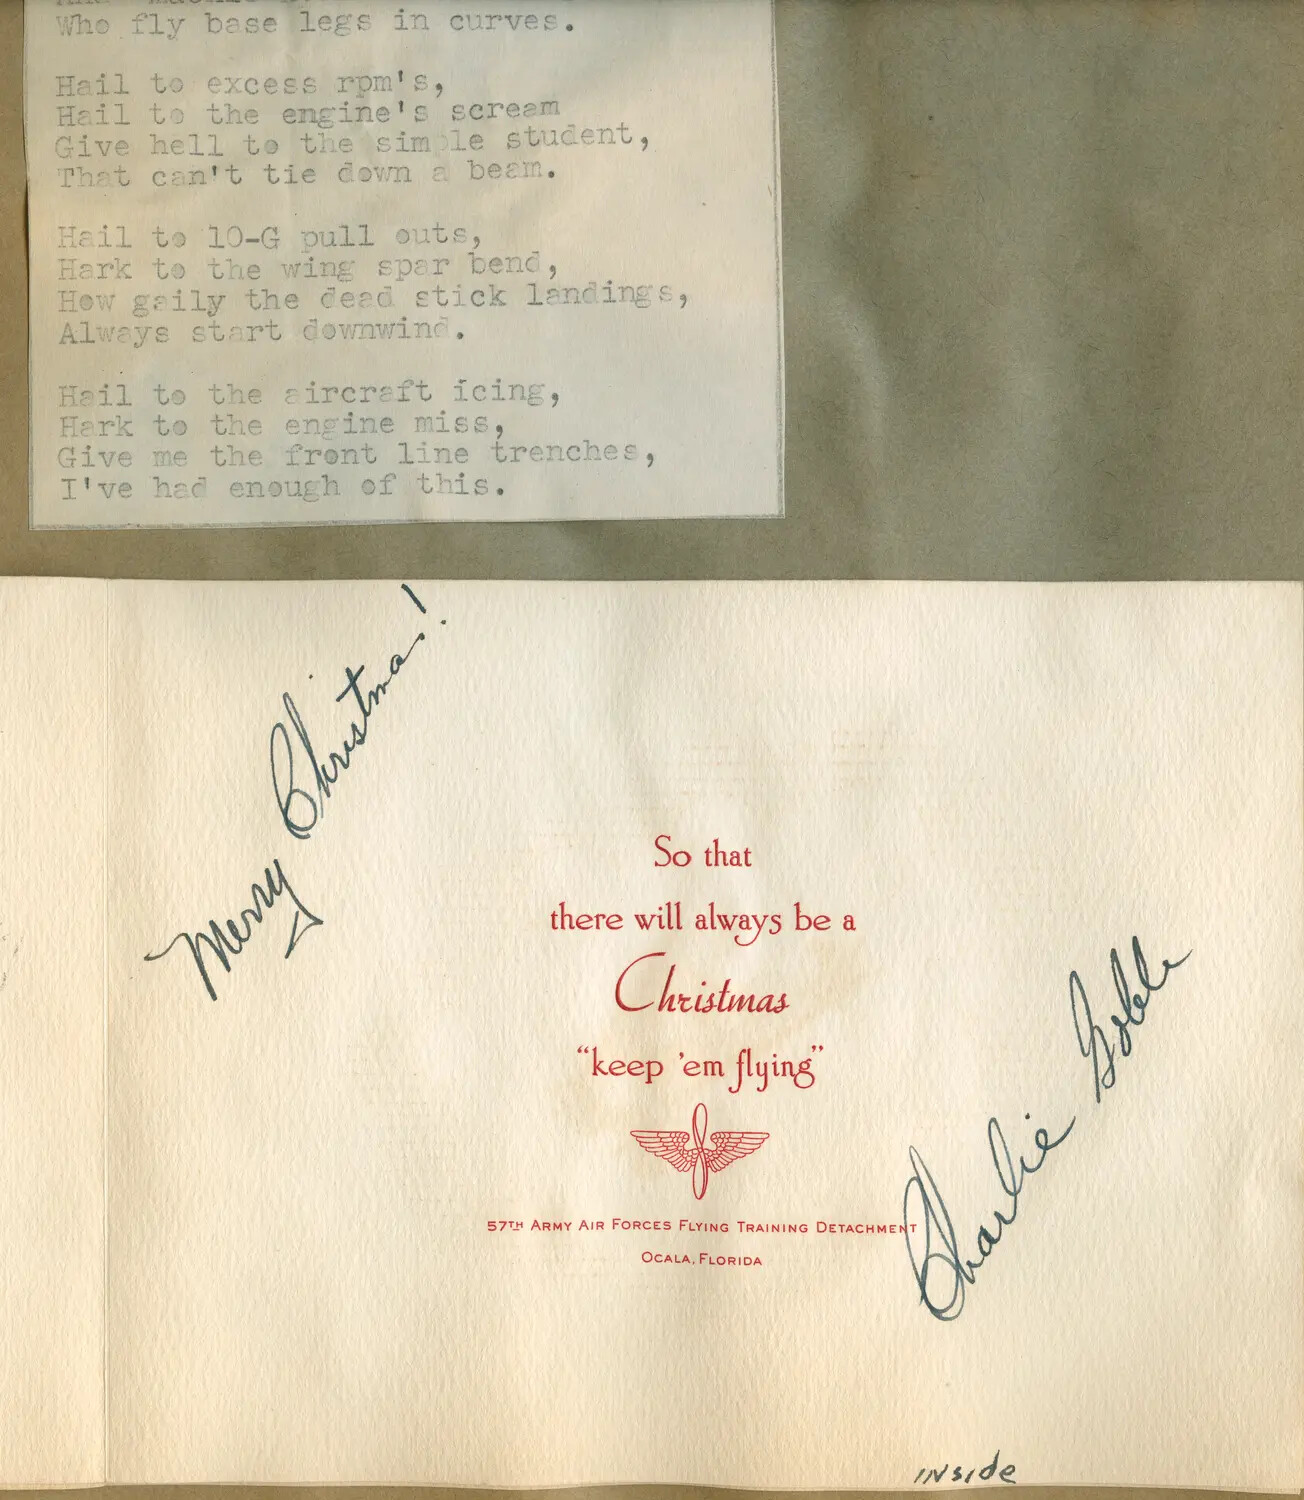 Who fly base legs in curves.
Hail to excess rpm's,
Hail to the engine's scream
Give hell to the simple student,
That can't tie down a beam.
Hail to 10-G pull outs,
Hark to the wing spar bend,
How gaily the dead stick landings,
Always start downwind.
Hail to the aircraft icing,
Hark to the engine miss,
Give me the front line trenches,
I've had enough of this.
Merry Christmas!
So that
there will always be a
Christmas
"keep 'em flying"
57TH ARMY AIR FORCES FLYING TRAINING DETACHMENT
OCALA, FLORIDA
Charlie Goble
inside